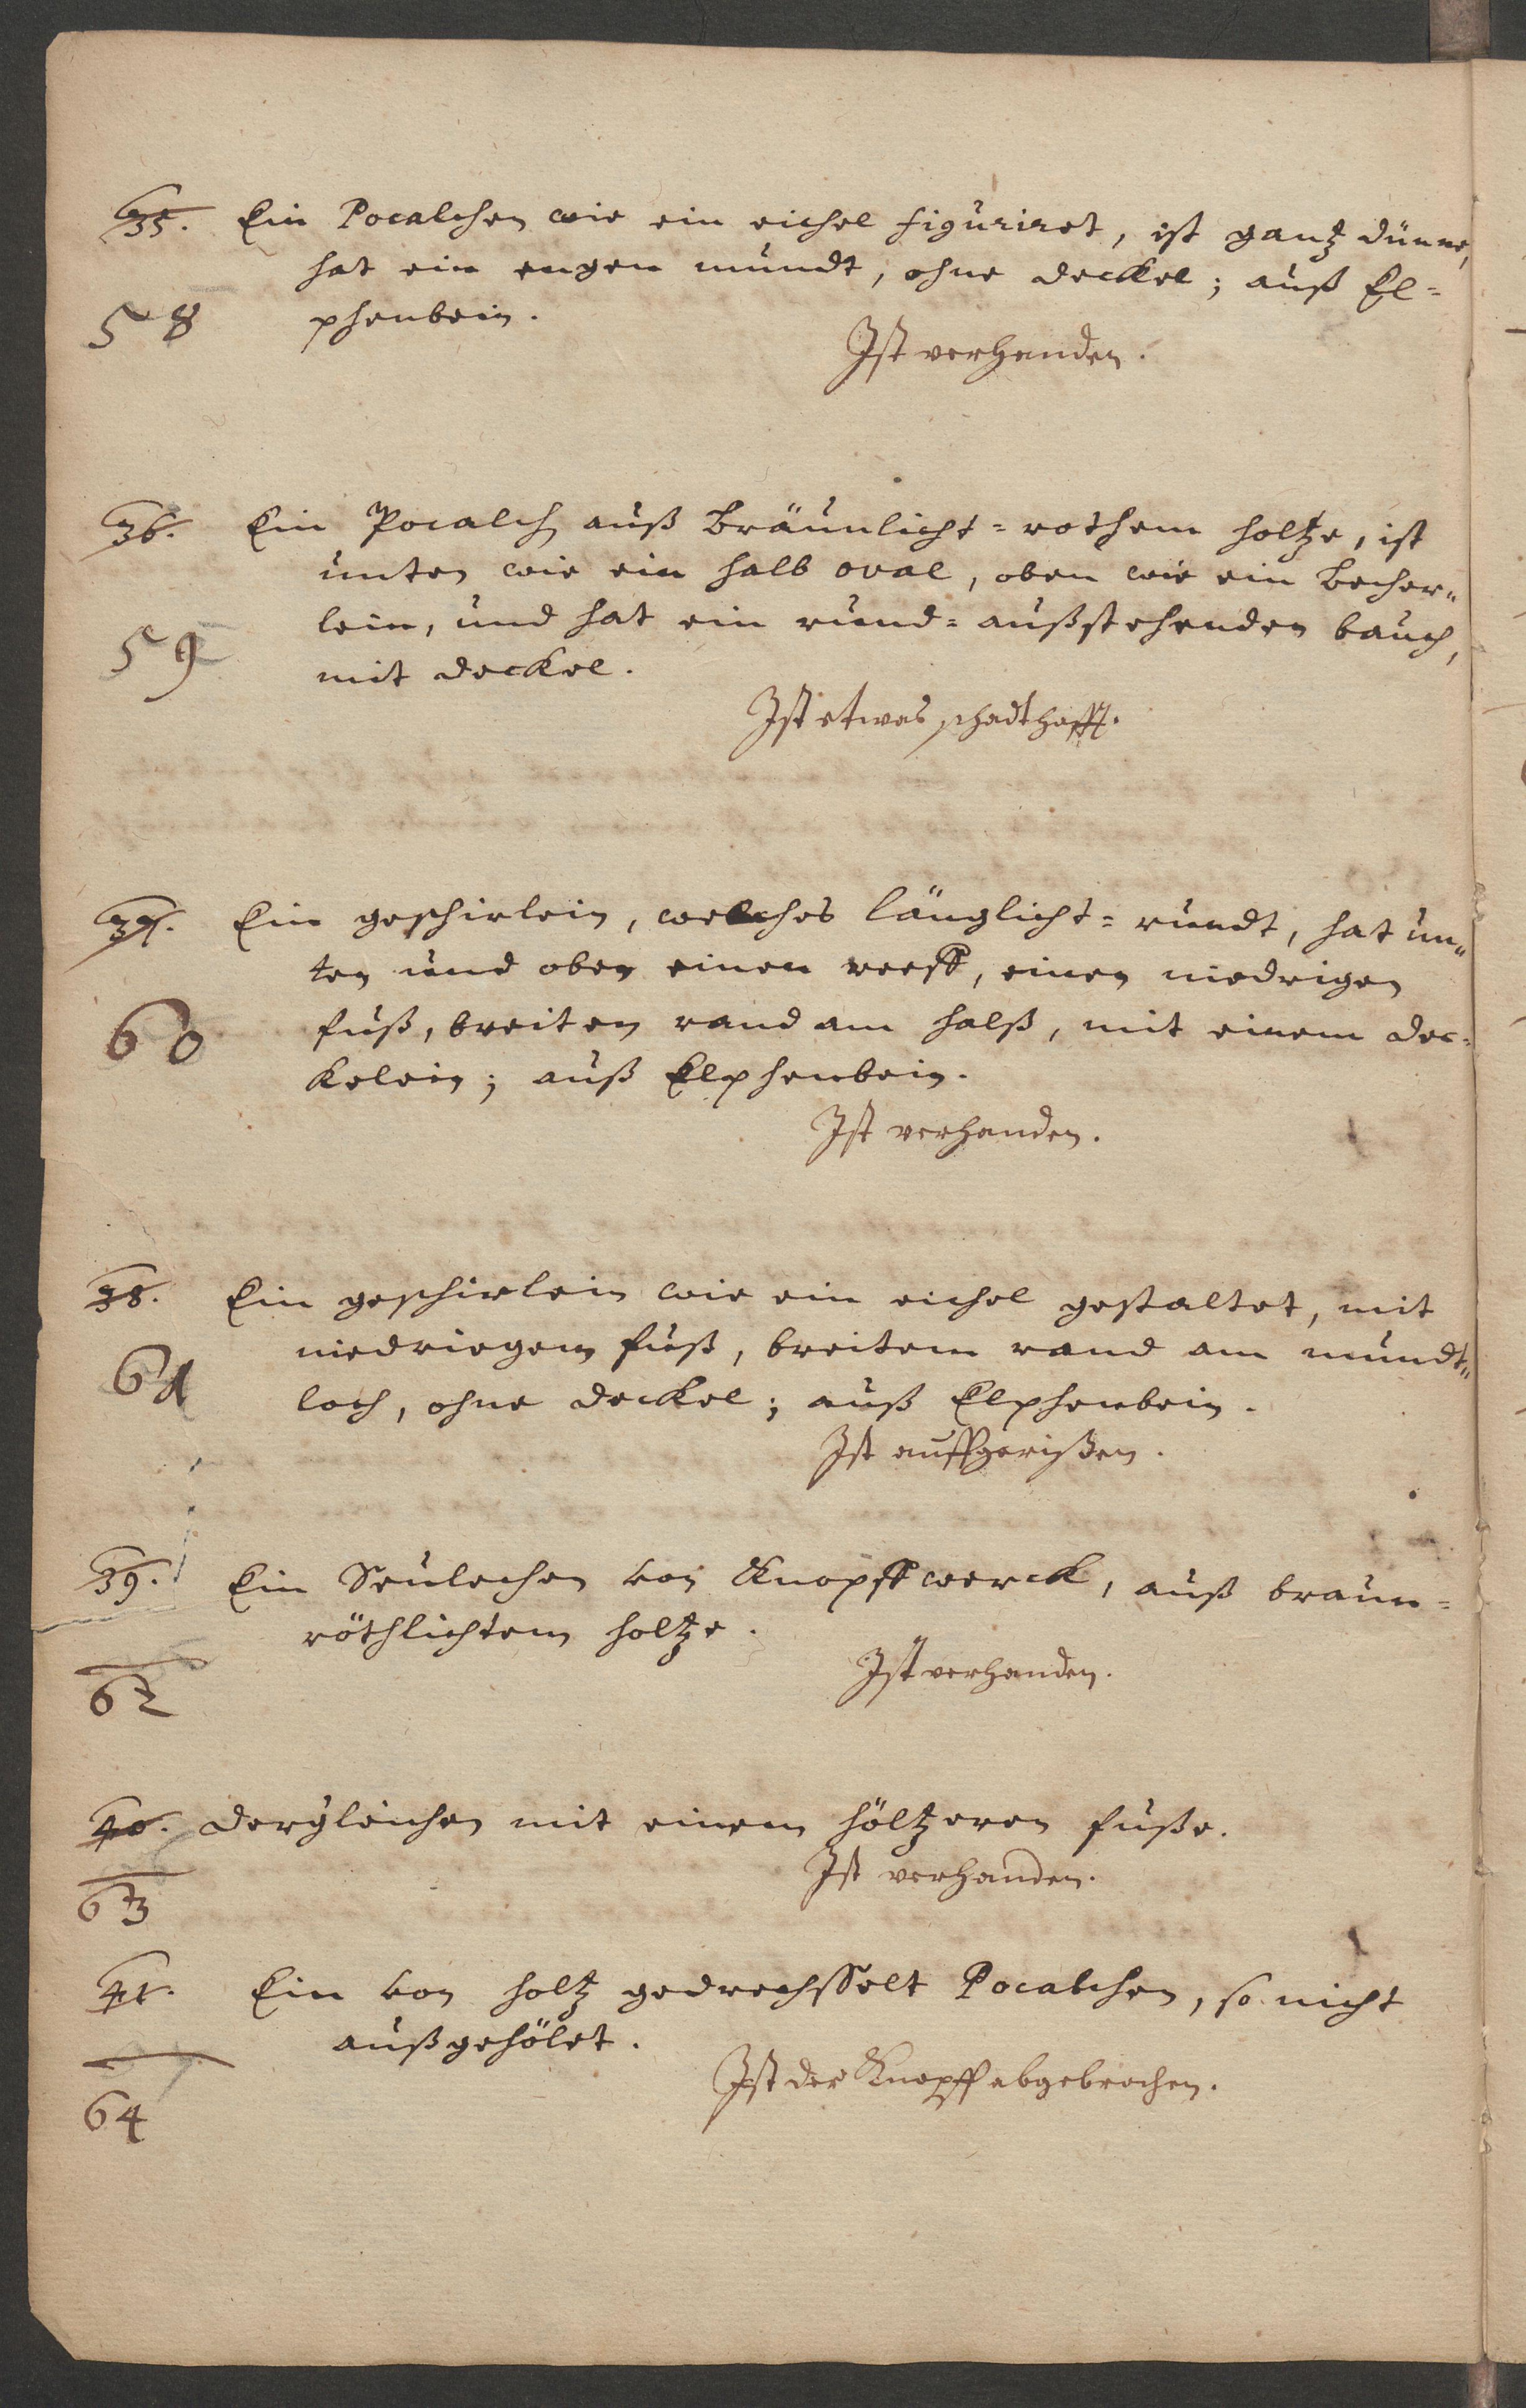 35. Ein Pocalchen wie ein eichel figuriret, ist gantz dünne,
hat ein engen mundt, ohne deckel; auß El=
58 phenbein.
Ist verhanden.
36. Ein Pocalch auß bräunlicht=rothem holtze, ist
unten wie ein halb oval, oben wie ein becher„
lein, und hat ein rund=außstehenden bauch,
59 mit deckel.
Ist etwas schadthafft.
37. Ein geschirlein, welches länglicht=rundt, hat un„
ten und oben einen reeff, einen niedrigen
60 fuß, breiten rand am halß, mit einem dec=
kelein; auß Elphenbein.
Ist verhanden.
38. Ein geschirlein wie ein eichel gestaltet, mit
niedriegem fuß, breitem rand am mundt„
61 loch, ohne deckel; auß Elphenbein.
Ist auffgerißen.
39. Ein Seulechen von Knopffwerck, auß braun=
röthlichtem holtze.
62 Ist verhanden.
40. dergleichen mit einem höltzeren fuße.
Ist verhanden.
63
41. Ein von holtz gedrechsselt Pocalchen, so nicht
außgehölet.
Ist der Knopff abgebrochen.
64